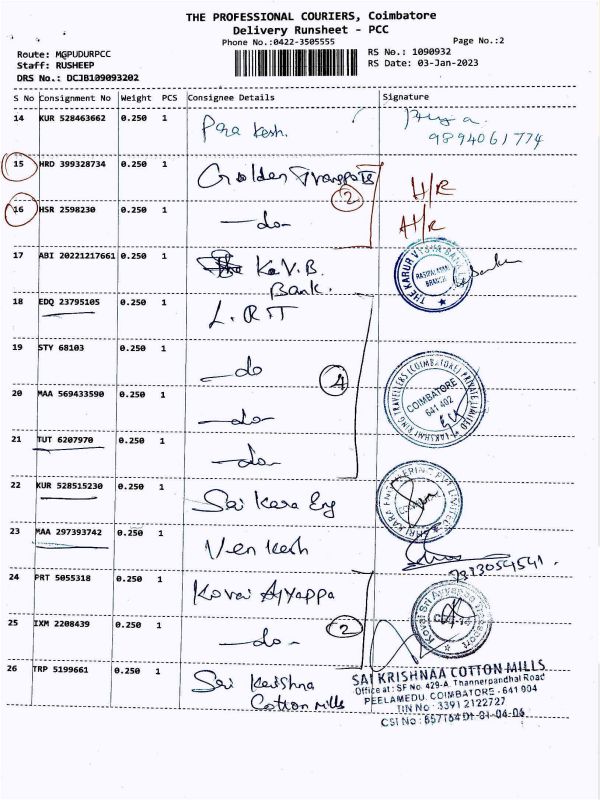 THE PROFESSIONAL COURIERS, Coimbatore
Delivery Runsheet - PCC
Phone No.:0422-3505555 Page No.:2
Route: MGPUDURPCC RS No.: 1090932
Staff: RUSHEEP RS Date: 03-Jan-2023
DRS No.: DCJB109093202
S No Consignment No Weight PCS Consignee Details Signature
14 KUR 528463662 0.250 1 Pra kash.
9894061774
15 HRD 399328734 0.250 1 Golden Transports H/R
2
16 HSR 2598230 0.250 1 -do- H/R
17 ABI 20221217661 0.250 1 K.V.B. Bank.
THE KARUR VYSYA BANK
BRANCH
18 EDQ 23795105 0.250 1 L.R.T
19 STY 68103 0.250 1 -do
4
20 MAA 569433590 0.250 1 -do-
LAKSHMI RING TRAVELLERS (COIMBATORE) PRIVATE LIMITED
COIMBATORE
641 402
21 TUT 6207970 0.250 1 -do-
22 KUR 528515230 0.250 1 Sai Kara Eng
23 MAA 297393742 0.250 1 Venkesh
24 PRT 5055318 0.250 1 Kovai Ayyappa
Kovai Sri Ayyappa Transport
25 IXM 2208439 0.250 1 -do-
2
26 TRP 5199661 0.250 1 Sai Krishna
Cotton Mills
SAI KRISHNAA COTTON MILLS
Office at : SF No. 429-A, Thannerpandhal Road
PEELAMEDU, COIMBATORE - 641 004
TIN No : 33912122727
CSI No : 657164 Dt 01-06-06